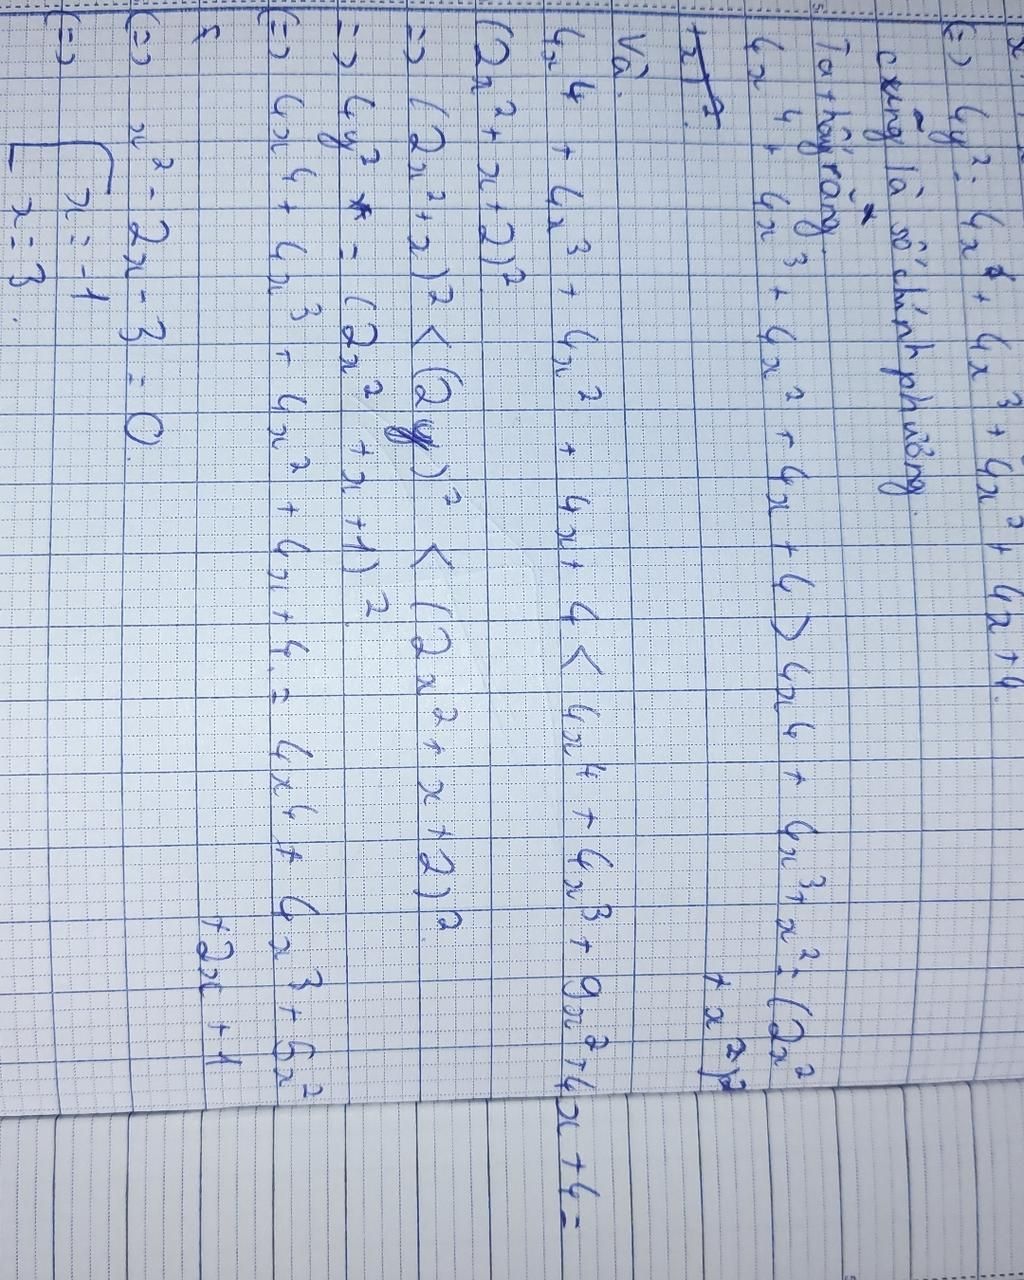 (=) 4y² = 4x⁴ + 4x³ + 4x² + 4x + 4.
cũng là số chính phương.
Ta thấy rằng
4x⁴ + 4x³ + 4x² + 4x + 4 > 4x⁴ + 4x³ + x² = (2x²
+ x²)²
Và.
4x⁴ + 4x³ + 4x² + 4x + 4 < 4x⁴ + 4x³ + 9x² + 4x + 4 =
(2x² + x + 2)²
=> (2x² + x)² < (2y)² < (2x² + x + 2)².
=> 4y² = (2x² + x + 1)².
(=) 4x⁴ + 4x³ + 4x² + 4x + 4 = 4x⁴ + 4x³ + 5x²
+ 2x + 1
(=) x² - 2x - 3 = 0.
(=) [ x = -1
x = 3.